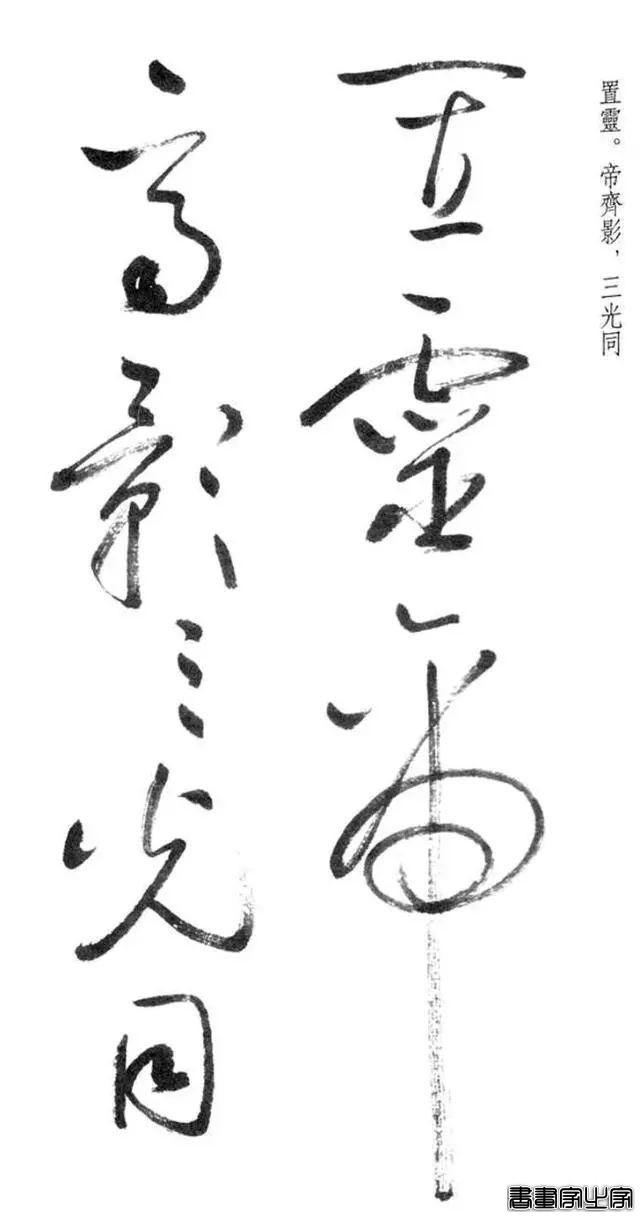 置靈。帝齊影，三光同
置靈帝
齊影三光同
書畫家之家